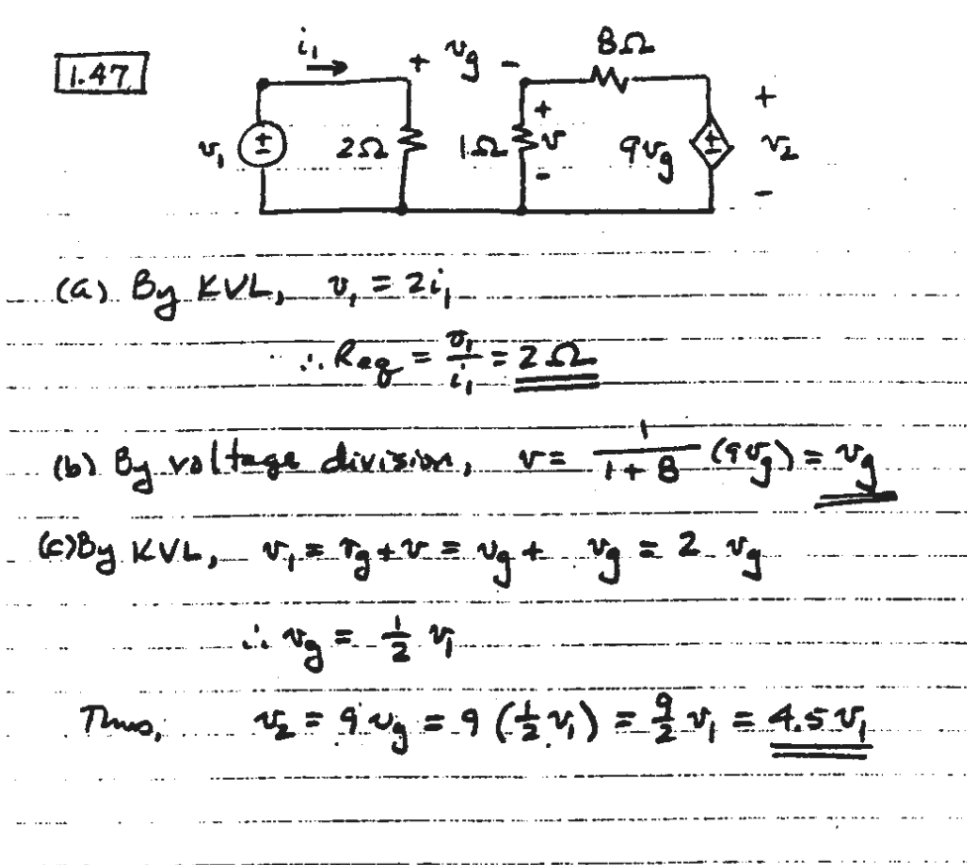 1.47
i₁ + v_g - 8Ω
v₁ ± 2Ω 1Ω + v - 9v_g ± + v₂ -
(a) By KVL, v₁ = 2i₁
∴ Req = v₁/i₁ = 2Ω
(b) By voltage division, v = 1/(1+8) (9v_g) = v_g
(c) By KVL, v₁ = v_g + v = v_g + v_g = 2 v_g
∴ v_g = 1/2 v₁
Thus, v₂ = 9v_g = 9 (1/2 v₁) = 9/2 v₁ = 4.5 v₁